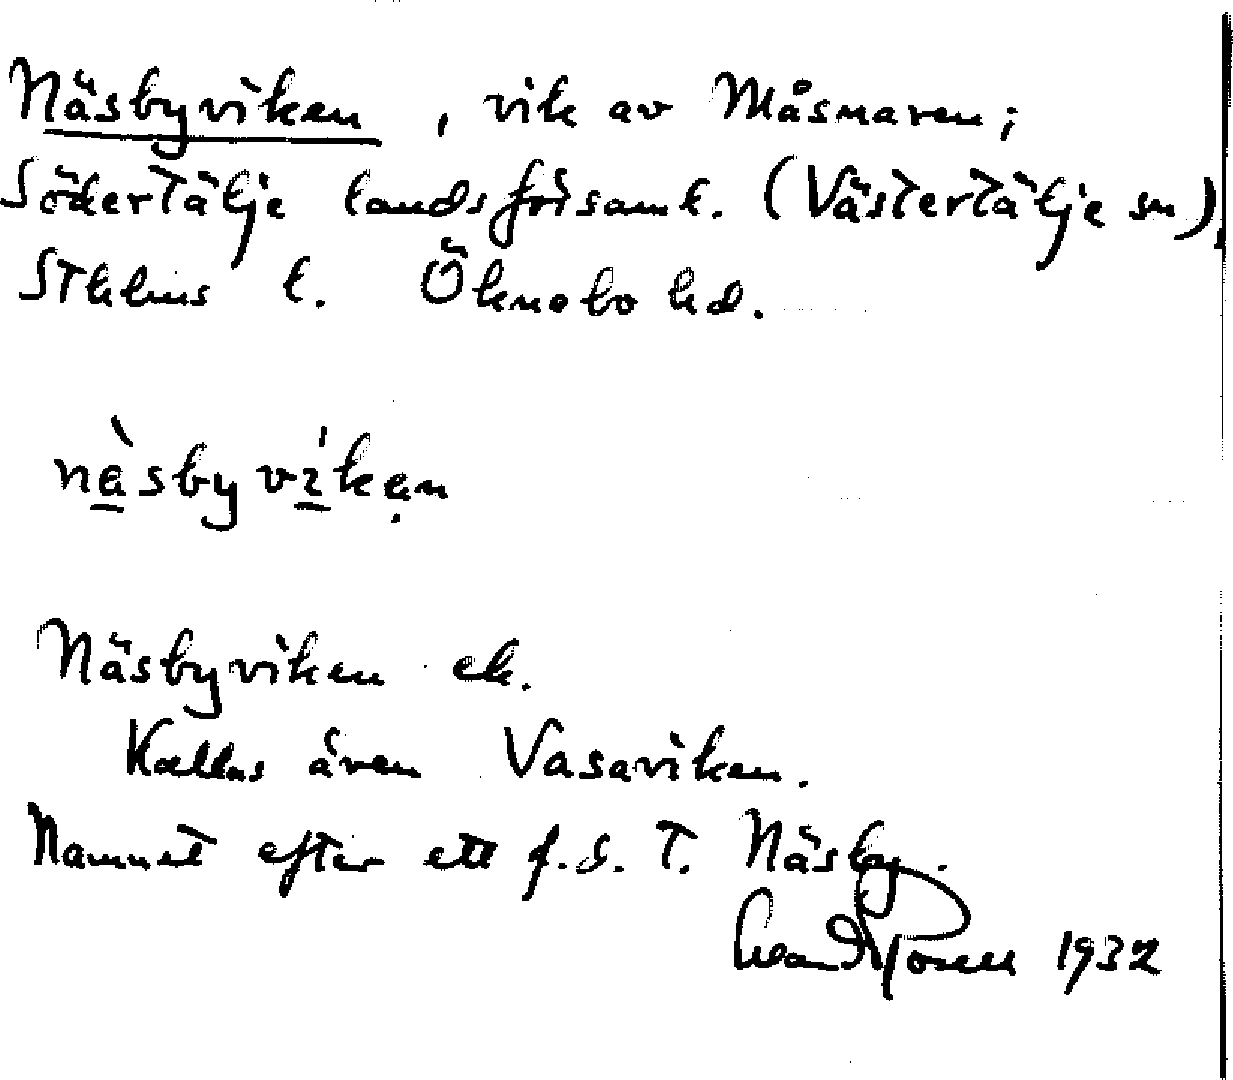 Näsbyviken, vik av Måsnaren;
Södertälje landsförsaml. (Västertälje sn),
Sthlms l. Öknebo hd.
nä̀sbyví̱kẹn
Näsbyviken ek.
Kallas även Vasaviken.
Namnet efter ett f.d. t. Näsby.
1932